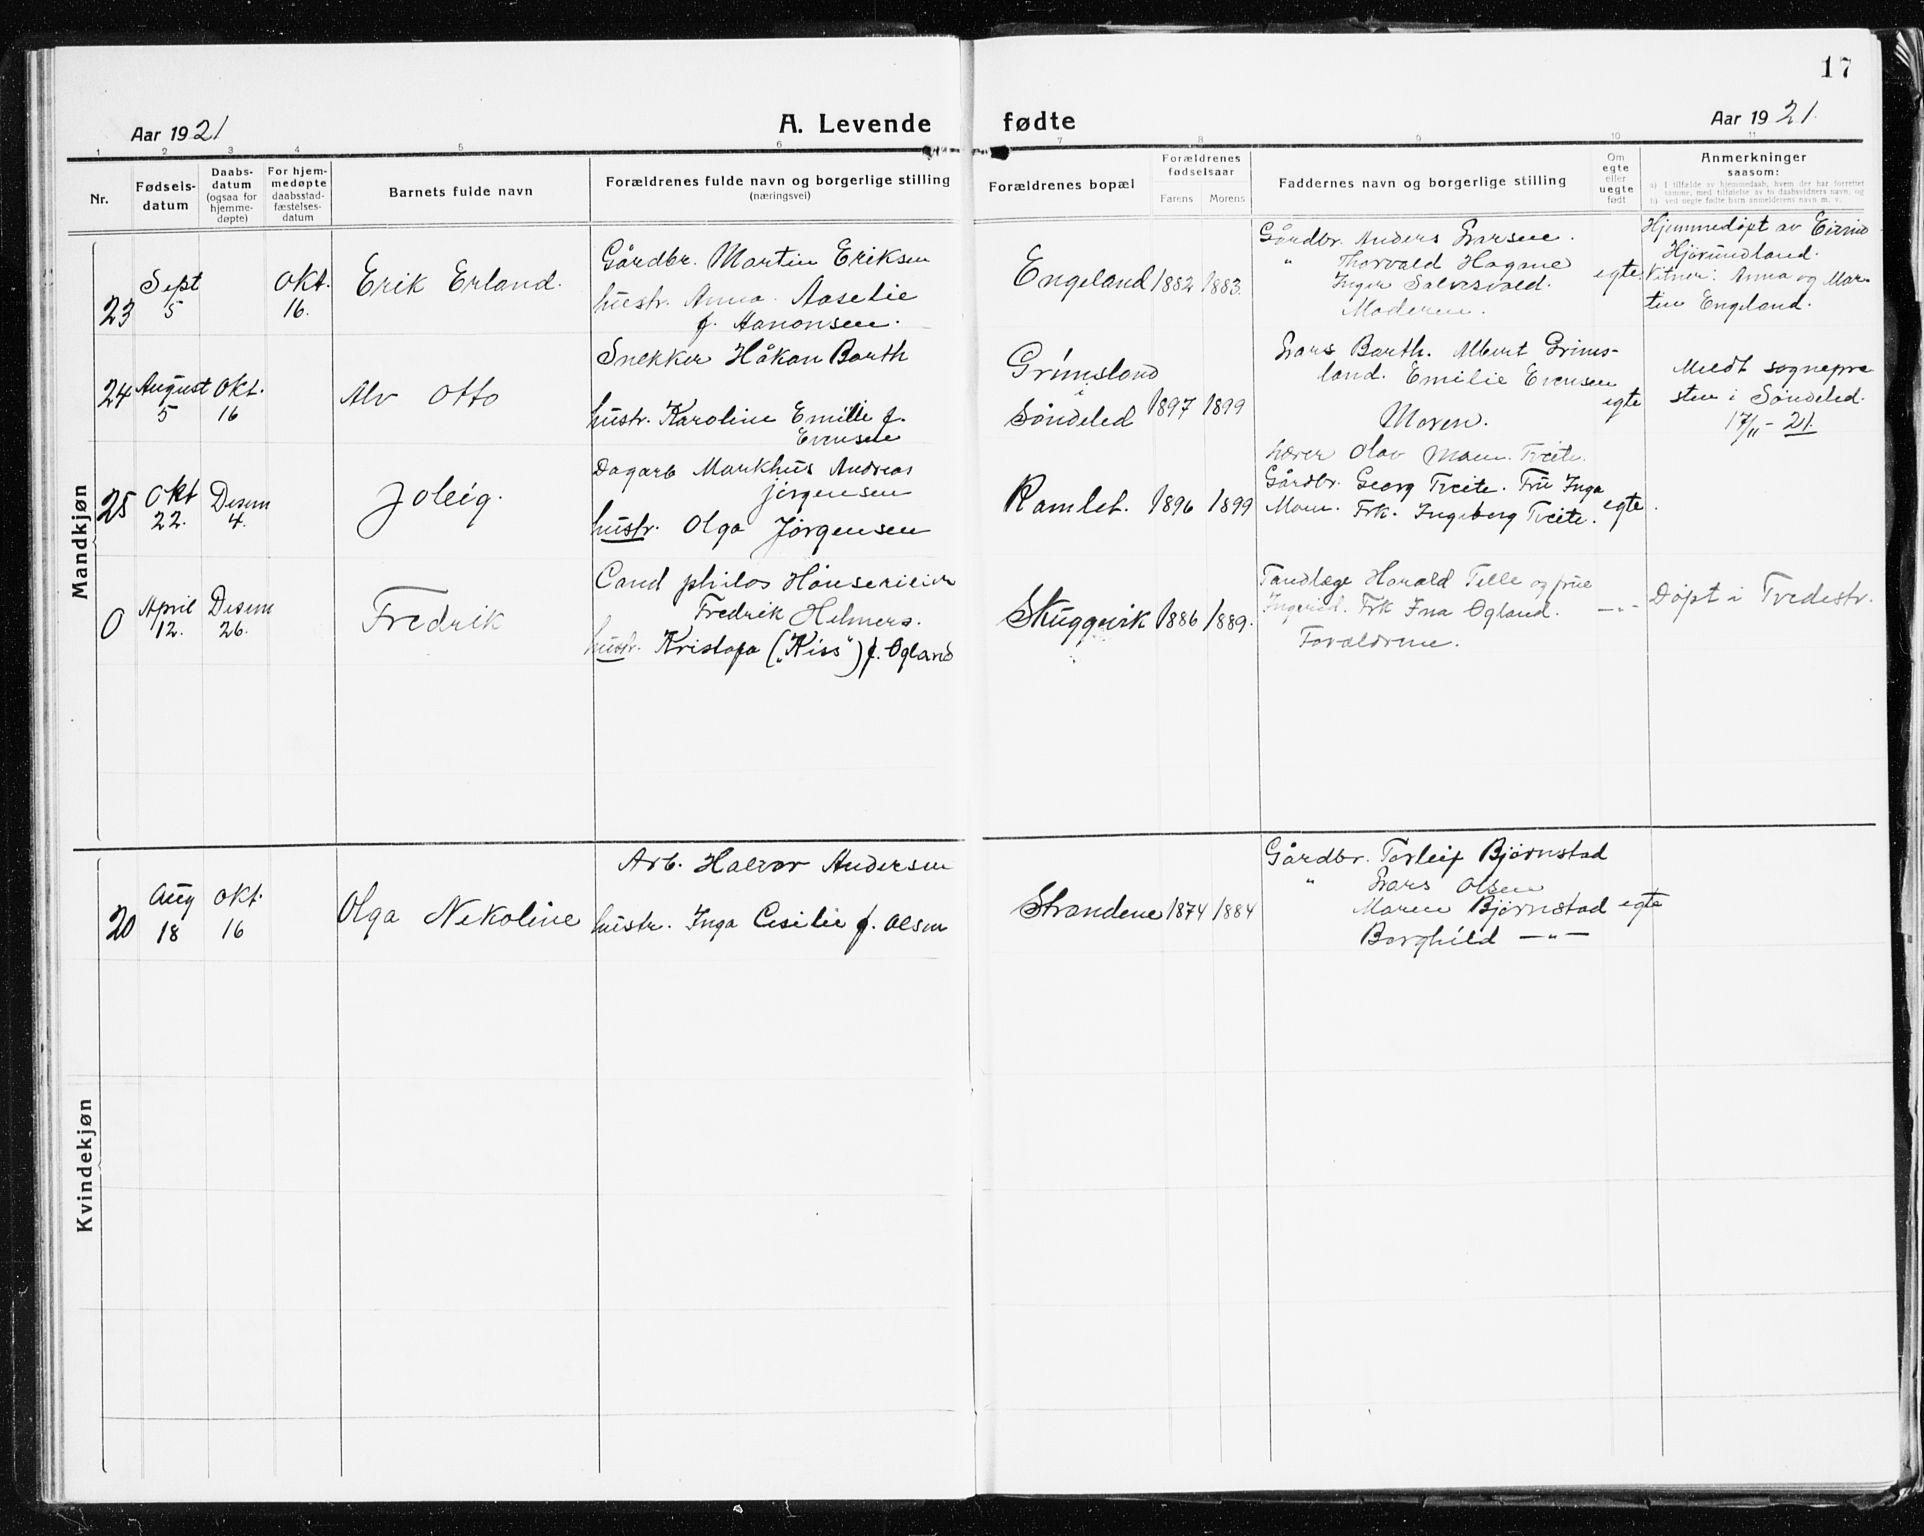 17
Aar 1921
A. Levende fødte
Aar 1921.
1 2 3 4 5 6 7 8 9 10 11
Nr.
Fødsels-
datum
Daabs-
datum
(ogsaa for
hjemme-
døpte)
For hjem-
medøpte
daabsstad-
fæstelses-
datum
Barnets fulde navn
Forældrenes fulde navn og borgerlige stilling
(næringsvei)
Forældrenes bopæl
Forældrenes
fødselsaar
Farens Morens
Faddernes navn og borgerlige stilling
Om
egte
eller
uegte
født
Anmerkninger
saasom:
a) I tilfælde av hjemmedaab, hvem der har forrettet
samme, med tilføielse av to daabsvidners navn, og
b) ved uegte fødte barn anmelderens navn m. v.
Mandkjøn
23
Sept
5
Okt.
16.
Erik Erland.
Gårdbr. Martin Eriksen
hustr. Anna Aaselie
f. Aanonsen.
Engeland
1882 1883.
Gårdbr. Anders Larsen.
" Thorvald Hagane
Inger Salvesvold.
Moderen.
egte
Hjemmedøpt av Eivind
Hjörundland.
Vitner: Anna og Mar-
tin Engeland.
24
August
5
Okt.
16
Alv Otto
Snekker Håkon Barth
hustr. Karoline Emilie f.
Evensen
Grimsland
i
Søndeled
1897 1899
Lars Barth. Albert Grims-
land. Emilie Evensen
Moren.
egte
Meldt sognepre
sten i Søndeled.
17/11 - 21.
25
Okt
22.
Desem
4.
Joleig.
Dagarb Markhus Andreas
Jørgensen
hustr. Olga Jørgensen
Ramlet.
1896 1899
Lærer Olav Moen. Tveite.
Gårdbr. Georg Tveite. Fru Inga
Moen. Frk. Ingeborg Tveite.
egte.
0
April
12.
Desem
26.
Fredrik
Cand philos Hønserieier
Fredrik Helmers.
hustr. Kristofa („Kiss") f. Ogland
Skuggevik
1886 1889.
Tandlæge Harald Telle og frue
Ingerid. Frk Ina Ogland.
Foreldrene.
—"—
Døpt i Tvedestr.
Kvindekjøn
20
Aug
18
Okt.
16
Olga Nekoline
Arb. Halvor Andersen
hustr. Inga Cesilie f. Olsen
Strandene
1874 1884
Gårdbr. Torleif Bjørnstad
" Lars Olsen
Maren Bjørnstad
Borghild —"—
egte